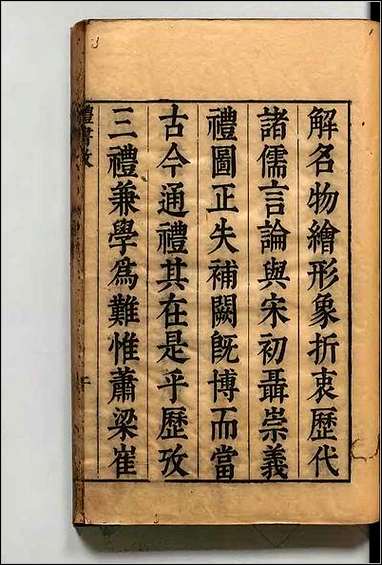 解名物繪形象折衷歷代
諸儒言論與宋初聶崇義
禮圖正失補闕旣博而當
古今通禮其在是乎歷攷
三禮兼學爲難惟蕭梁崔
禮書攷